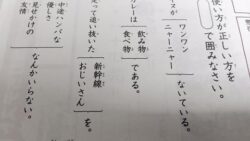 使い方が正しい方を
で囲みなさい。
ワンワン
ニャーニャー
ないている。
カレーは
飲み物
食べ物
である。
走って追い抜いた
新幹線
おじいさん
を。
中途ハンパな
優しさ
見せかけの
友情
なんかいらない。